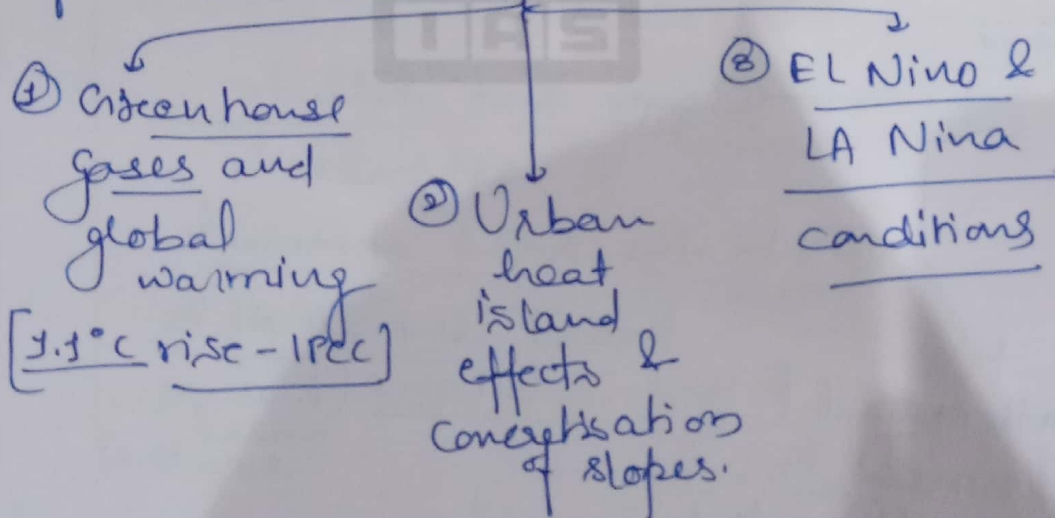 IAS
① Greenhouse
gases and
global
warming
[1.1°C rise - IPCC]
② Urban
heat
island
effects &
concretisation
of slopes.
③ EL Nino &
LA Nina
conditions